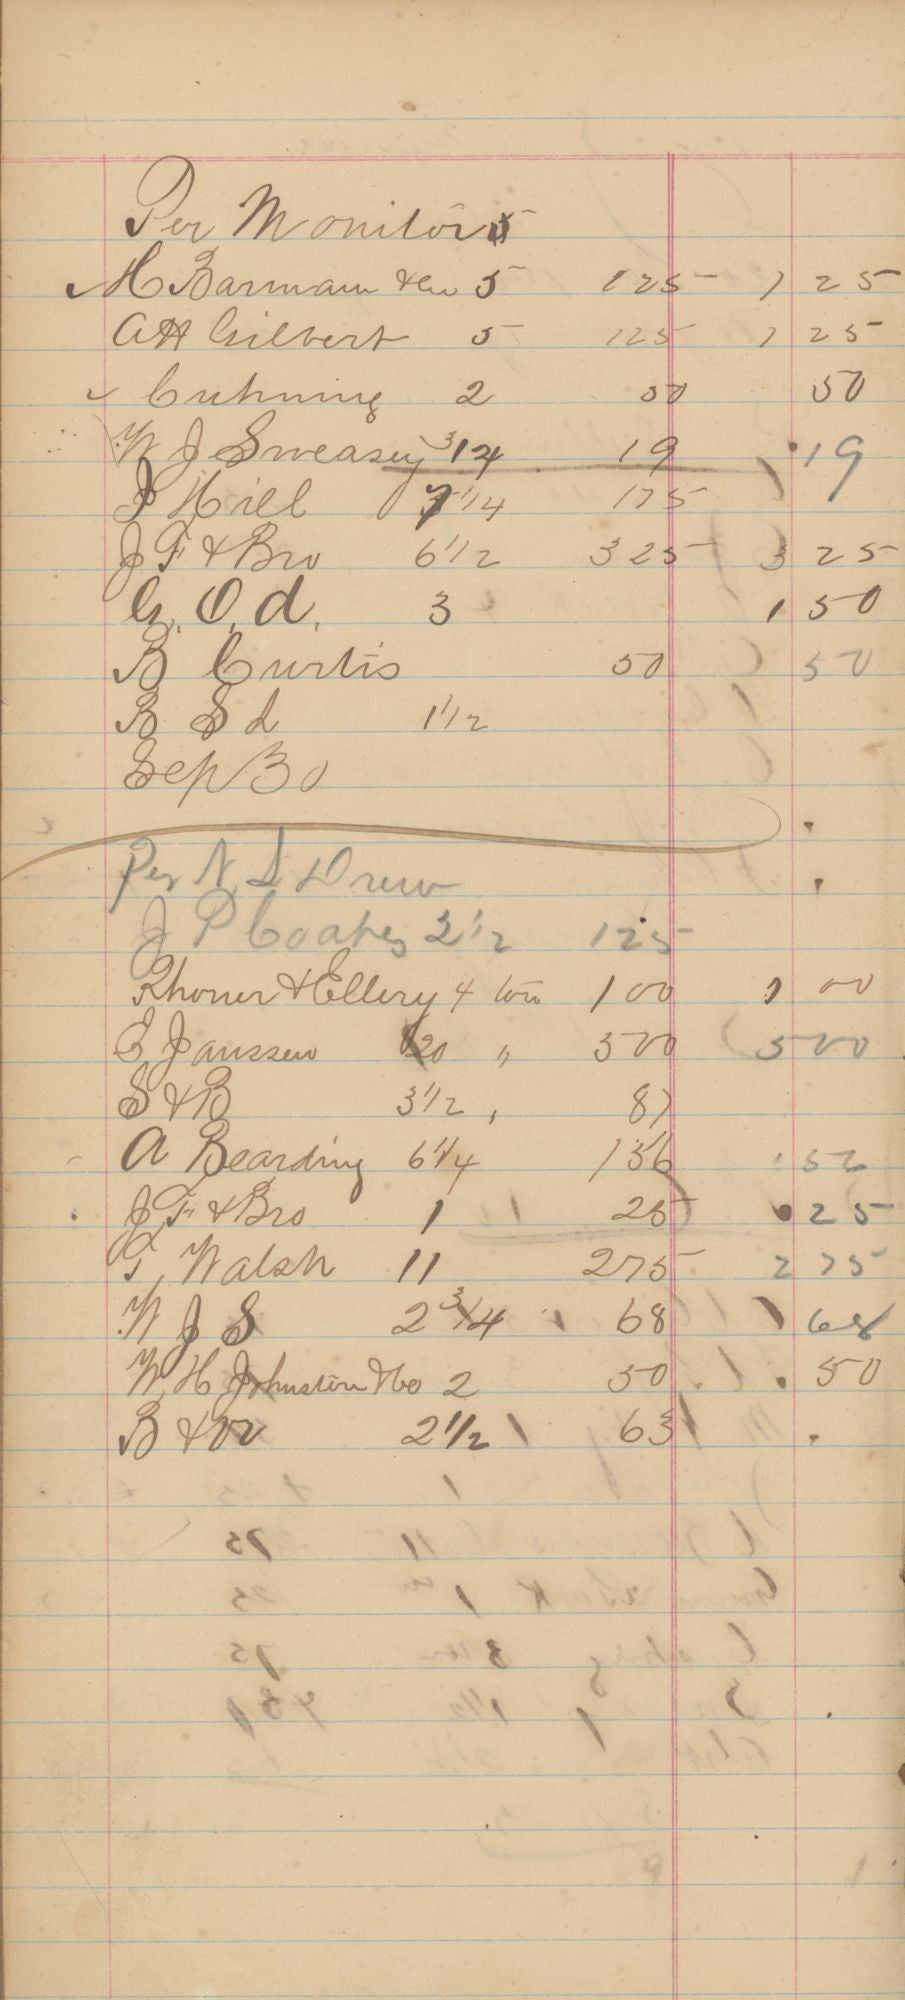 Per Monitor 5
M Barman & Co 5 125 1 25
A H Gilbert 5 125 1 25
2 50 50
W J Sweasey 3/4 19 19
J Hill 7 1/4 175
J F & Bro 6 1/2 325 3 25
G. O. d. 3 1 50
B Curtis 50 50
B S d 1 1/2
Sep 30
Per N L Drew
J P Coates 2 1/2 125
Rhoner & Ellery 4 ton 100 1 00
E Janssen 20 " 500 500
S & B 3 1/2 " 87
A Bearding 6 1/4 156 52
J F & Bro 1 25 25
T, Walsh 11 275 2 75
W J S 2 3/4 68 68
W. H Johnston & Co 2 50 50
B & 2 1/2 63